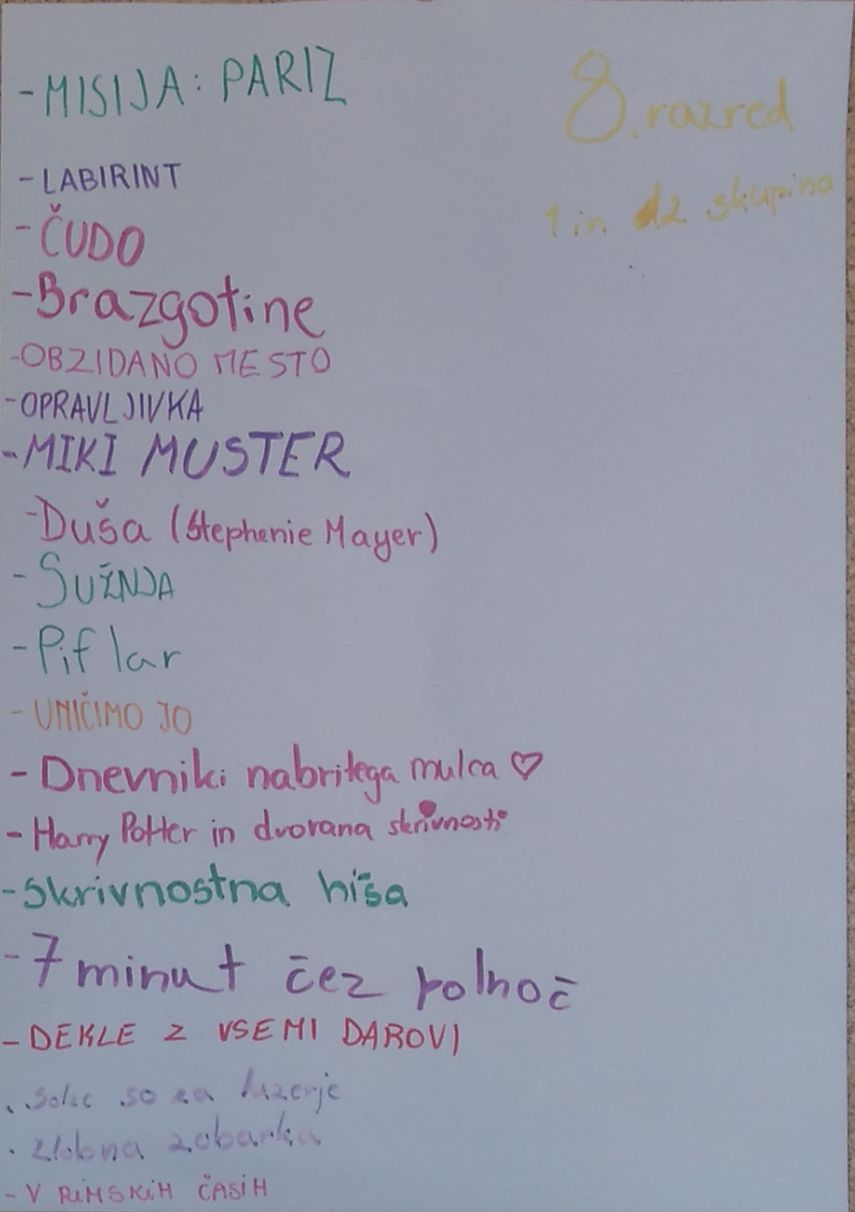 -MISIJA: PARIZ
8. razred
1 in 2 skupina
-LABIRINT
-ČUDO
-Brazgotine
-OBZIDANO MESTO
-OPRAVLJIVKA
-MIKI MUSTER
-Duša (Stephenie Mayer)
-SUŽNJA
-Piflar
-UNIČIMO JO
-Dnevniki nabritega mulca ♡
-Harry Potter in dvorana skrivnosti
-Skrivnostna hiša
-7 minut čez polnoč
-DEKLE Z VSEMI DAROVI
. Solze so za luzerje
. Zlobna zobarka
-V RiMSKiH ČASiH